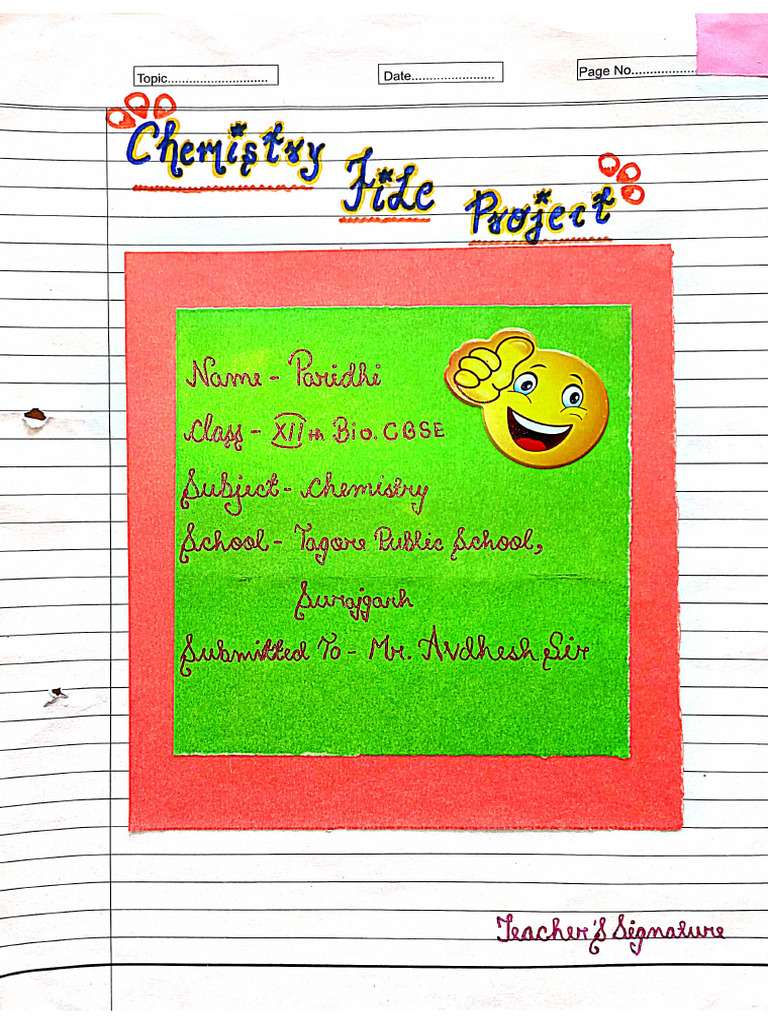 Topic............................
Date.......................
Page No..................
Chemistry File Project
Name - Paridhi
Class - XIIth Bio. CBSE
Subject - Chemistry
School - Tagore Public School,
Surajgarh
Submitted To - Mr. Avdhesh Sir
Teacher's Signature